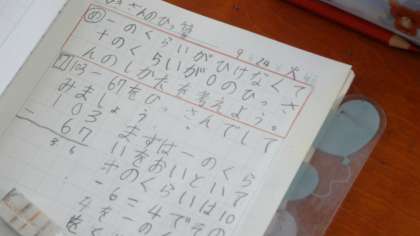 ひきさんのひっ算
9 20 火
め 一のくらいがひけなくて
十のくらいが0のひっさ
んのしかたを考えよう。
1 103-67をひっさんでして
みましょう。
103 まずは一のくら
- 67 いをおいといて
36 十のくらいは10
-6=4でその
4を一の